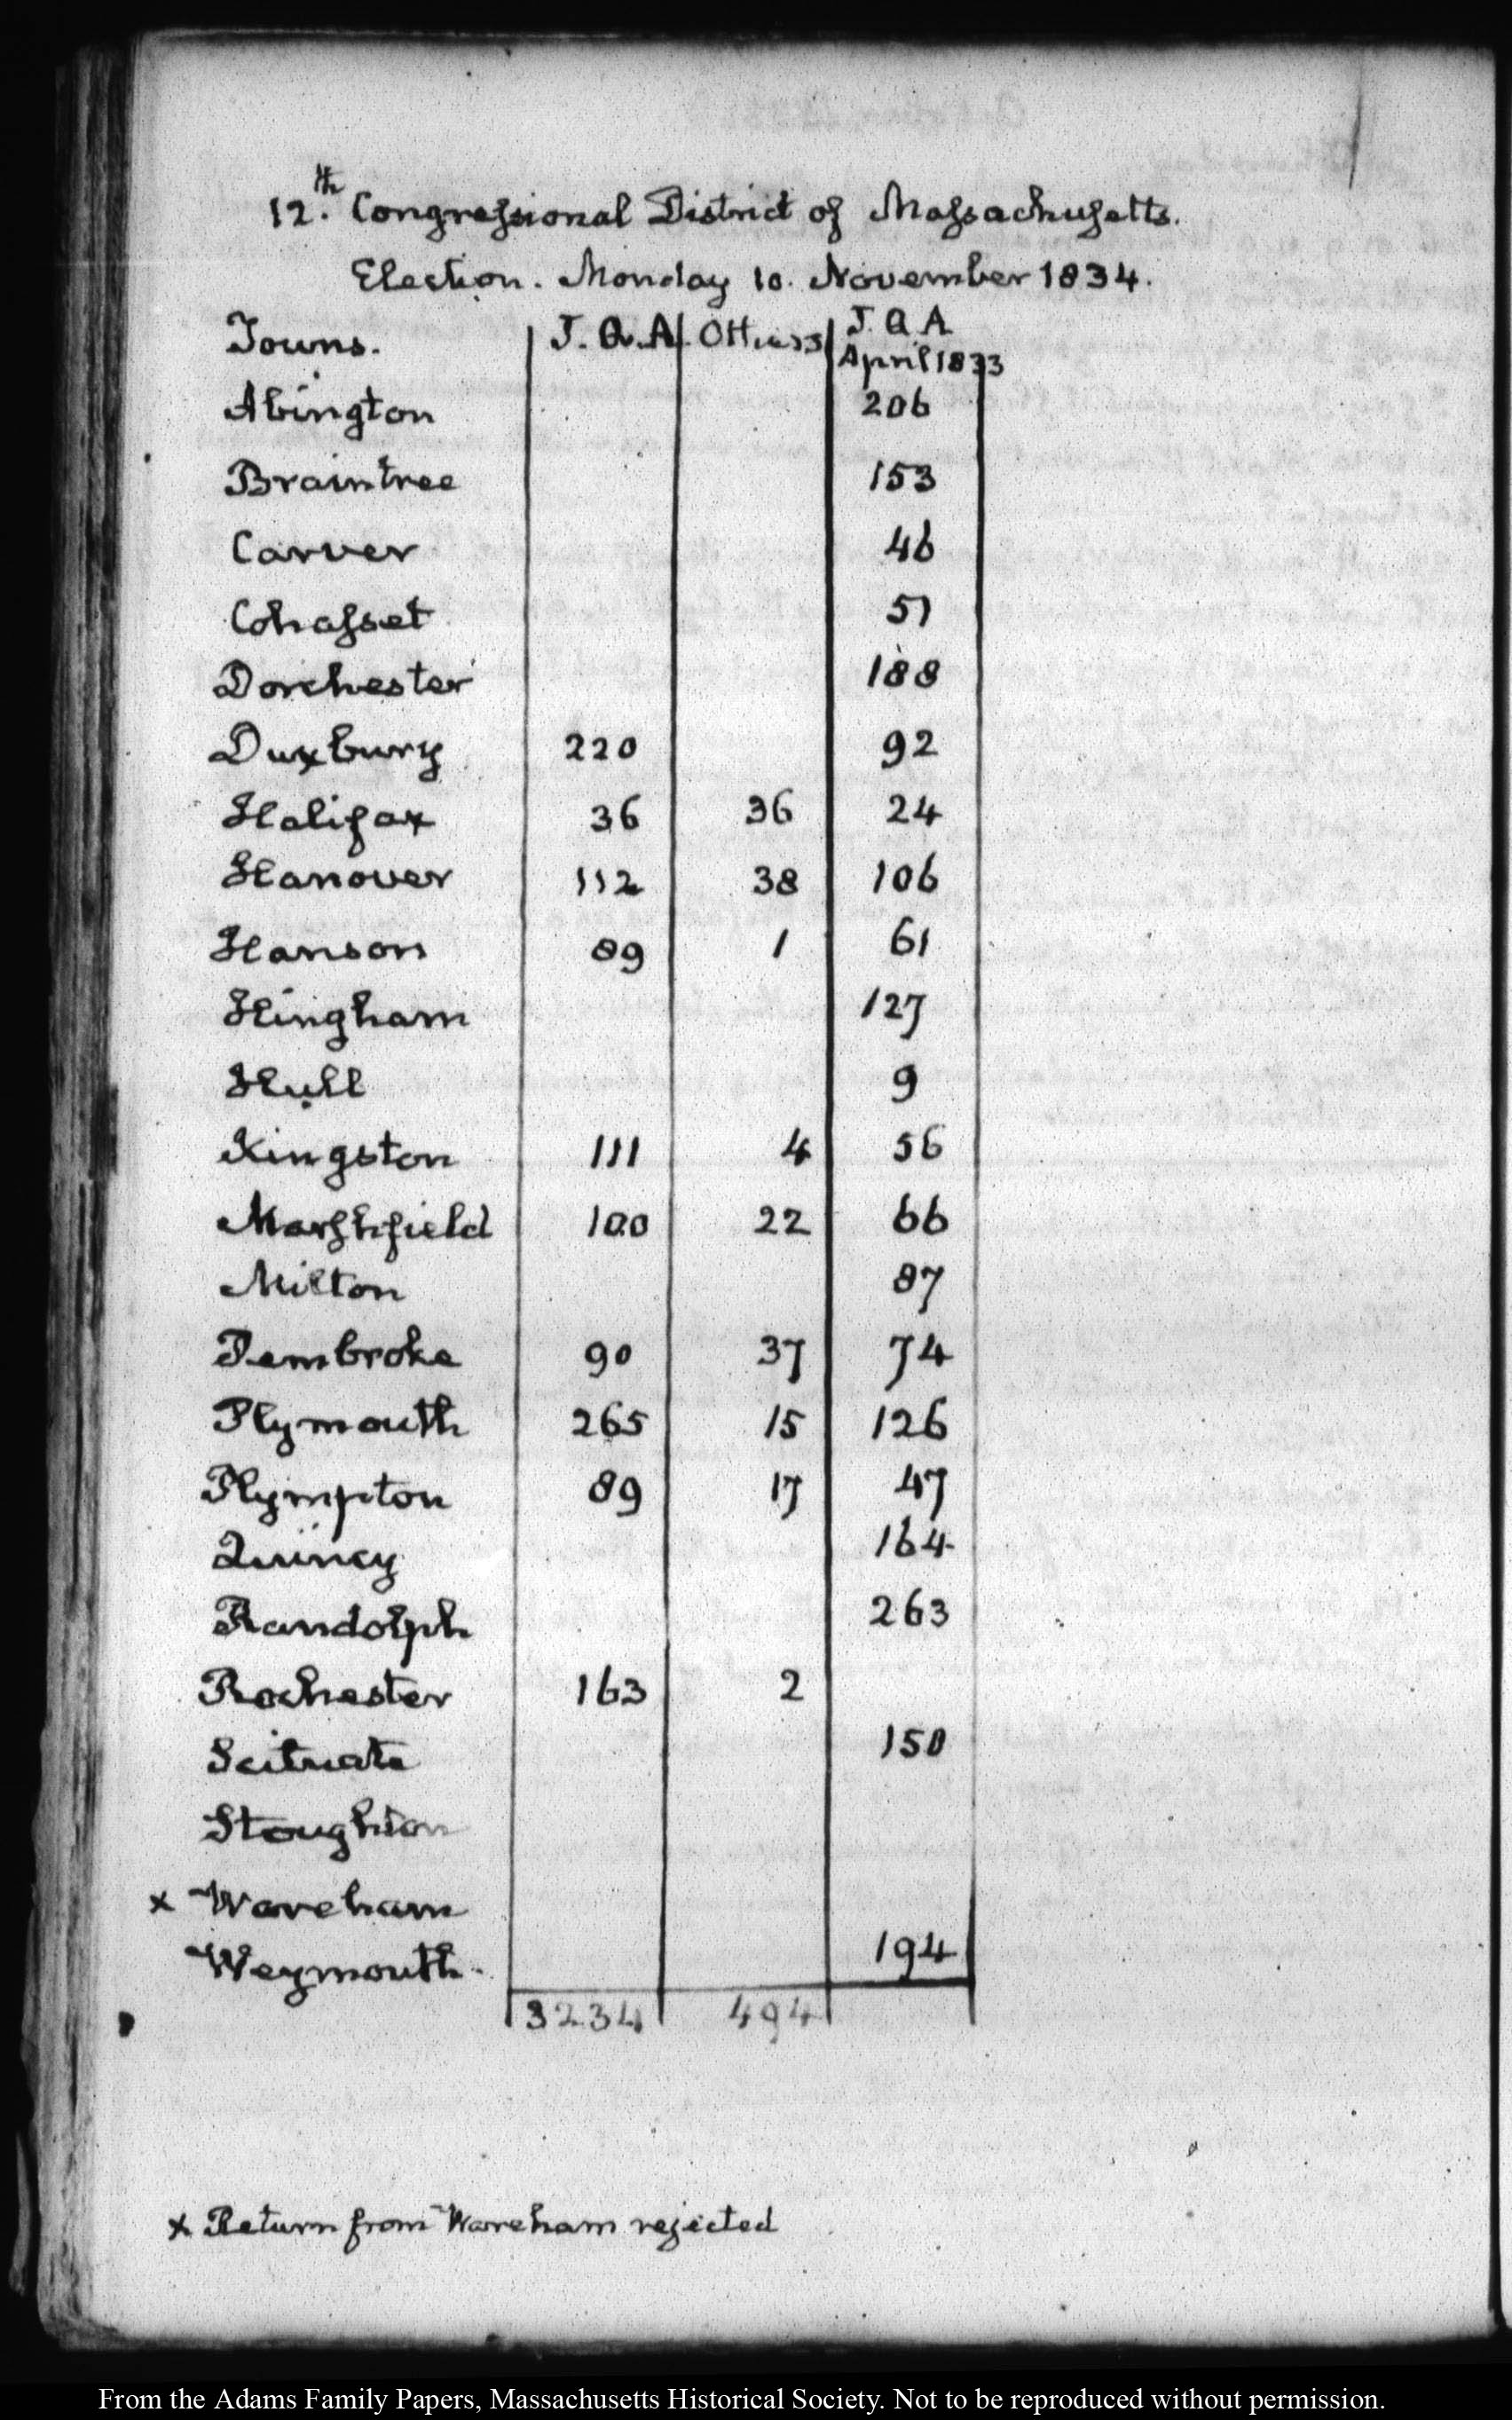 12.th Congressional District of Massachusetts.
Election. Monday 10. November 1834.
Towns. J. Q. A. Others J. Q. A April 1833
Abington 206
Braintree 153
Carver 46
Cohasset 51
Dorchester 188
Duxbury 220 92
Halifax 36 36 24
Hanover 112 38 106
Hanson 89 1 61
Hingham 127
Hull 9
Kingston 111 4 56
Marshfield 100 22 66
Milton 87
Pembroke 90 37 74
Plymouth 265 15 126
Plympton 89 17 47
Quincy 164
Randolph 263
Rochester 163 2
Scituate 150
Stoughton
x Wareham
Weymouth. 194
3234 494
x Return from Wareham rejected
From the Adams Family Papers, Massachusetts Historical Society. Not to be reproduced without permission.